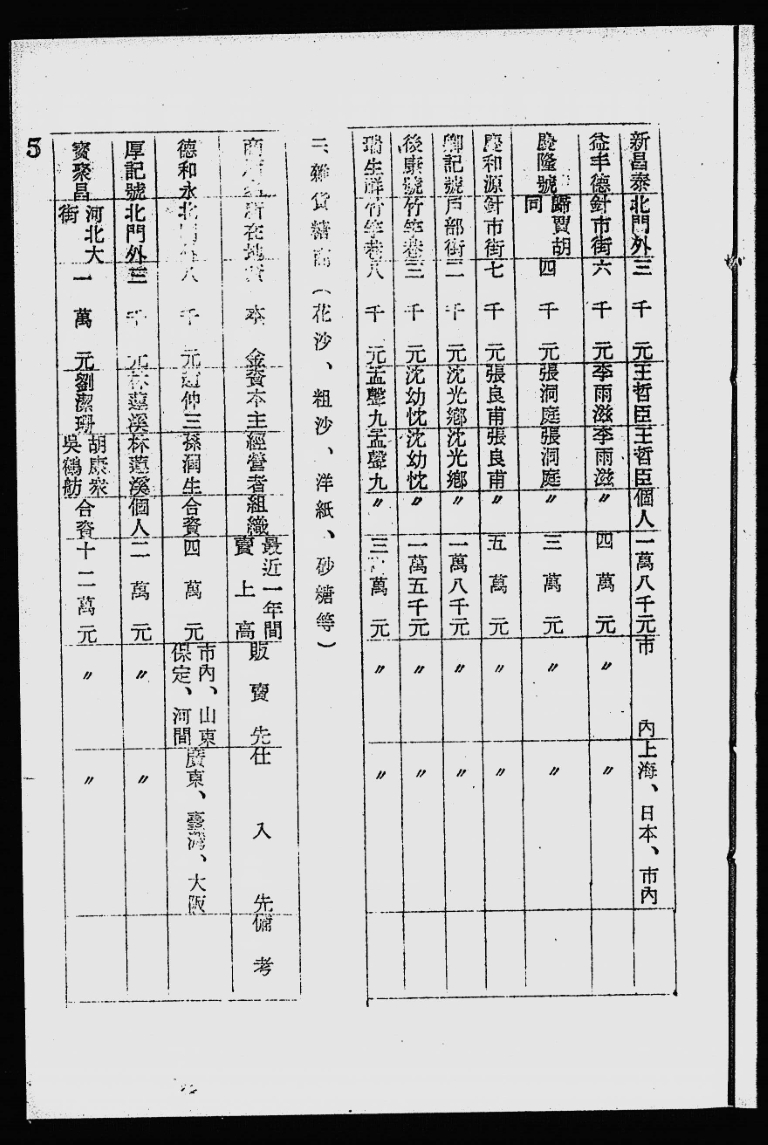 新昌泰 北門外 三千元 王哲臣 王哲臣 個人 一萬八千元 市內 上海、日本、市內
益丰德 針市街 六千元 李雨滋 李雨滋 〃 四萬元 〃 〃
慶隆號 歸賈胡同 四千元 張洞庭 張洞庭 〃 三萬元 〃 〃
慶和源 針市街 七千元 張良甫 張良甫 〃 五萬元 〃 〃
卿記號 戶部街 二千元 沈光鄉 沈光鄉 〃 一萬八千元 〃 〃
後康號 竹竿巷 三千元 沈幼忱 沈幼忱 〃 一萬五千元 〃 〃
瑞生祥 竹竿巷 八千元 孟聲九 孟聲九 〃 三 萬元 〃 〃
二、雜貨糖商(花沙、粗沙、洋紙、砂糖等)
商 所在地 資本金 資本主 經營者 組織 最近一年間賣上高 販賣先 仕入先 備考
德和永 北 八千元 仲三 孫潤生 合資 四萬元 市內、山東保定、河間 廣東、臺灣、大阪
厚記號 北門外 三千元 林蓮溪 林蓮溪 個人 二萬元 〃 〃
寳聚昌 河北大街 一萬元 劉潔珊 胡康衆 吳鶴舫 合資 十二萬元 〃 〃
5